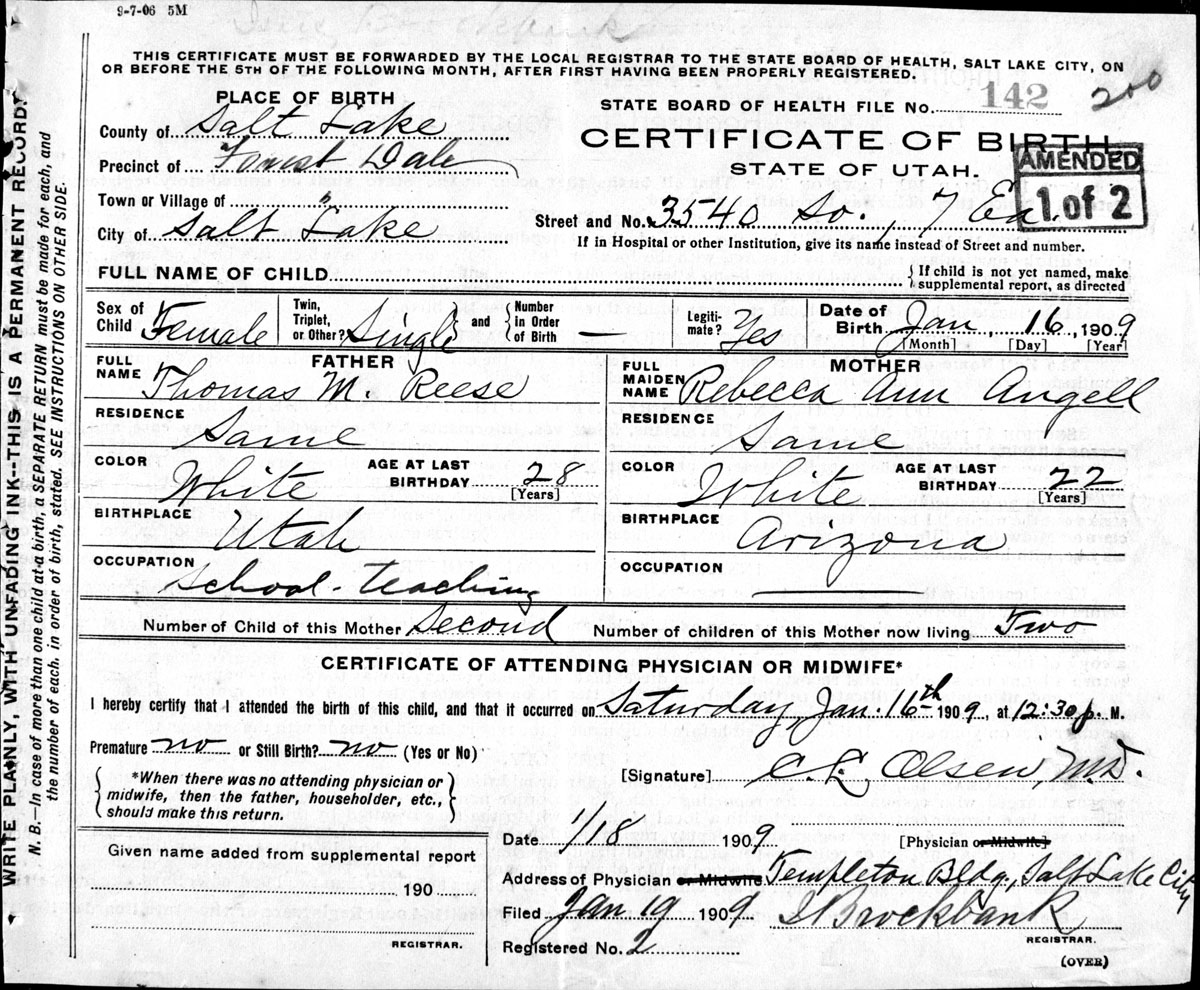 9-7-06 5M
THIS CERTIFICATE MUST BE FORWARDED BY THE LOCAL REGISTRAR TO THE STATE BOARD OF HEALTH, SALT LAKE CITY, ON
OR BEFORE THE 5TH OF THE FOLLOWING MONTH, AFTER FIRST HAVING BEEN PROPERLY REGISTERED.
PLACE OF BIRTH
County of Salt Lake
Precinct of Forest Dale
Town or Village of "
City of Salt Lake
STATE BOARD OF HEALTH FILE No. 142 200
CERTIFICATE OF BIRTH
STATE OF UTAH.
AMENDED
1 of 2
Street and No. 3540 So., 7 Ea.
If in Hospital or other Institution, give its name instead of Street and number.
FULL NAME OF CHILD
If child is not yet named, make
supplemental report, as directed
Sex of Child Female
Twin, Triplet, or Other? Single and Number in Order of Birth —
Legitimate? Yes
Date of Birth Jan. 16, 1909
[Month] [Day] [Year]
FATHER
FULL NAME Thomas M. Reese
RESIDENCE Same
COLOR White AGE AT LAST BIRTHDAY 28 [Years]
BIRTHPLACE Utah
OCCUPATION School-teaching
MOTHER
FULL MAIDEN NAME Rebecca Ann Angell
RESIDENCE Same
COLOR White AGE AT LAST BIRTHDAY 22 [Years]
BIRTHPLACE Arizona
OCCUPATION —
Number of Child of this Mother Second Number of children of this Mother now living Two
CERTIFICATE OF ATTENDING PHYSICIAN OR MIDWIFE*
I hereby certify that I attended the birth of this child, and that it occurred on Saturday, Jan. 16th 1909, at 12:30 p. M.
Premature no or Still Birth? no (Yes or No)
*When there was no attending physician or
midwife, then the father, householder, etc.,
should make this return.
[Signature] C. L. Olsen, M.D.
[Physician or Midwife]
Given name added from supplemental report
190
REGISTRAR.
Date 1/18 1909
Address of Physician or Midwife Templeton Bldg., Salt Lake City
Filed Jan 19 1909 Brockbank
REGISTRAR.
Registered No. 2
(OVER)
WRITE PLAINLY, WITH UNFADING INK--THIS IS A PERMANENT RECORD.
N. B.—In case of more than one child at a birth, a SEPARATE RETURN must be made for each, and
the number of each, in order of birth, stated. SEE INSTRUCTIONS ON OTHER SIDE.